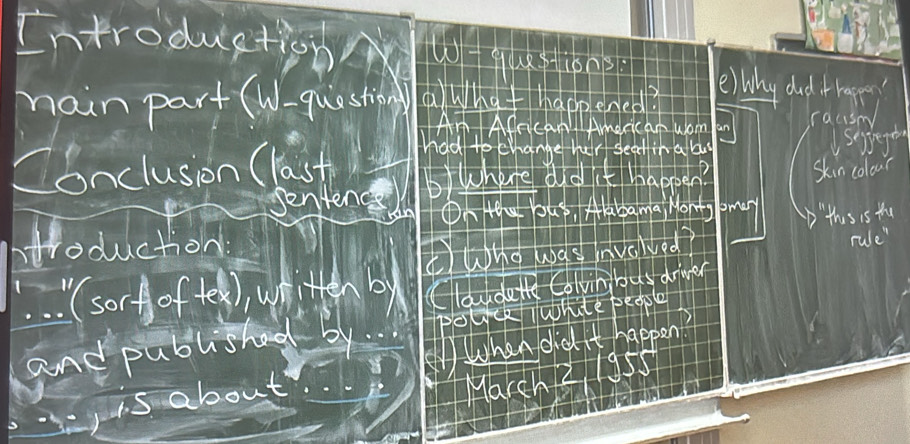 Introduction
main part (W-question)
Conclusion (last
sentence)
ntroduction:
"..." (sort of tex), written by
and published by ...
..., is about ....
W-questions:
a) What happened?
An African American woman
had to change her seat in a bus
b) Where did it happen?
On the bus, Alabama, Montgomery
c) Who was involved?
Claudette Colvin, bus driver
police, white people
d) When did it happen?
March 2, 1955
e) Why did it happen?
racism
Seggregation
Skin colour
"this is the
rule"